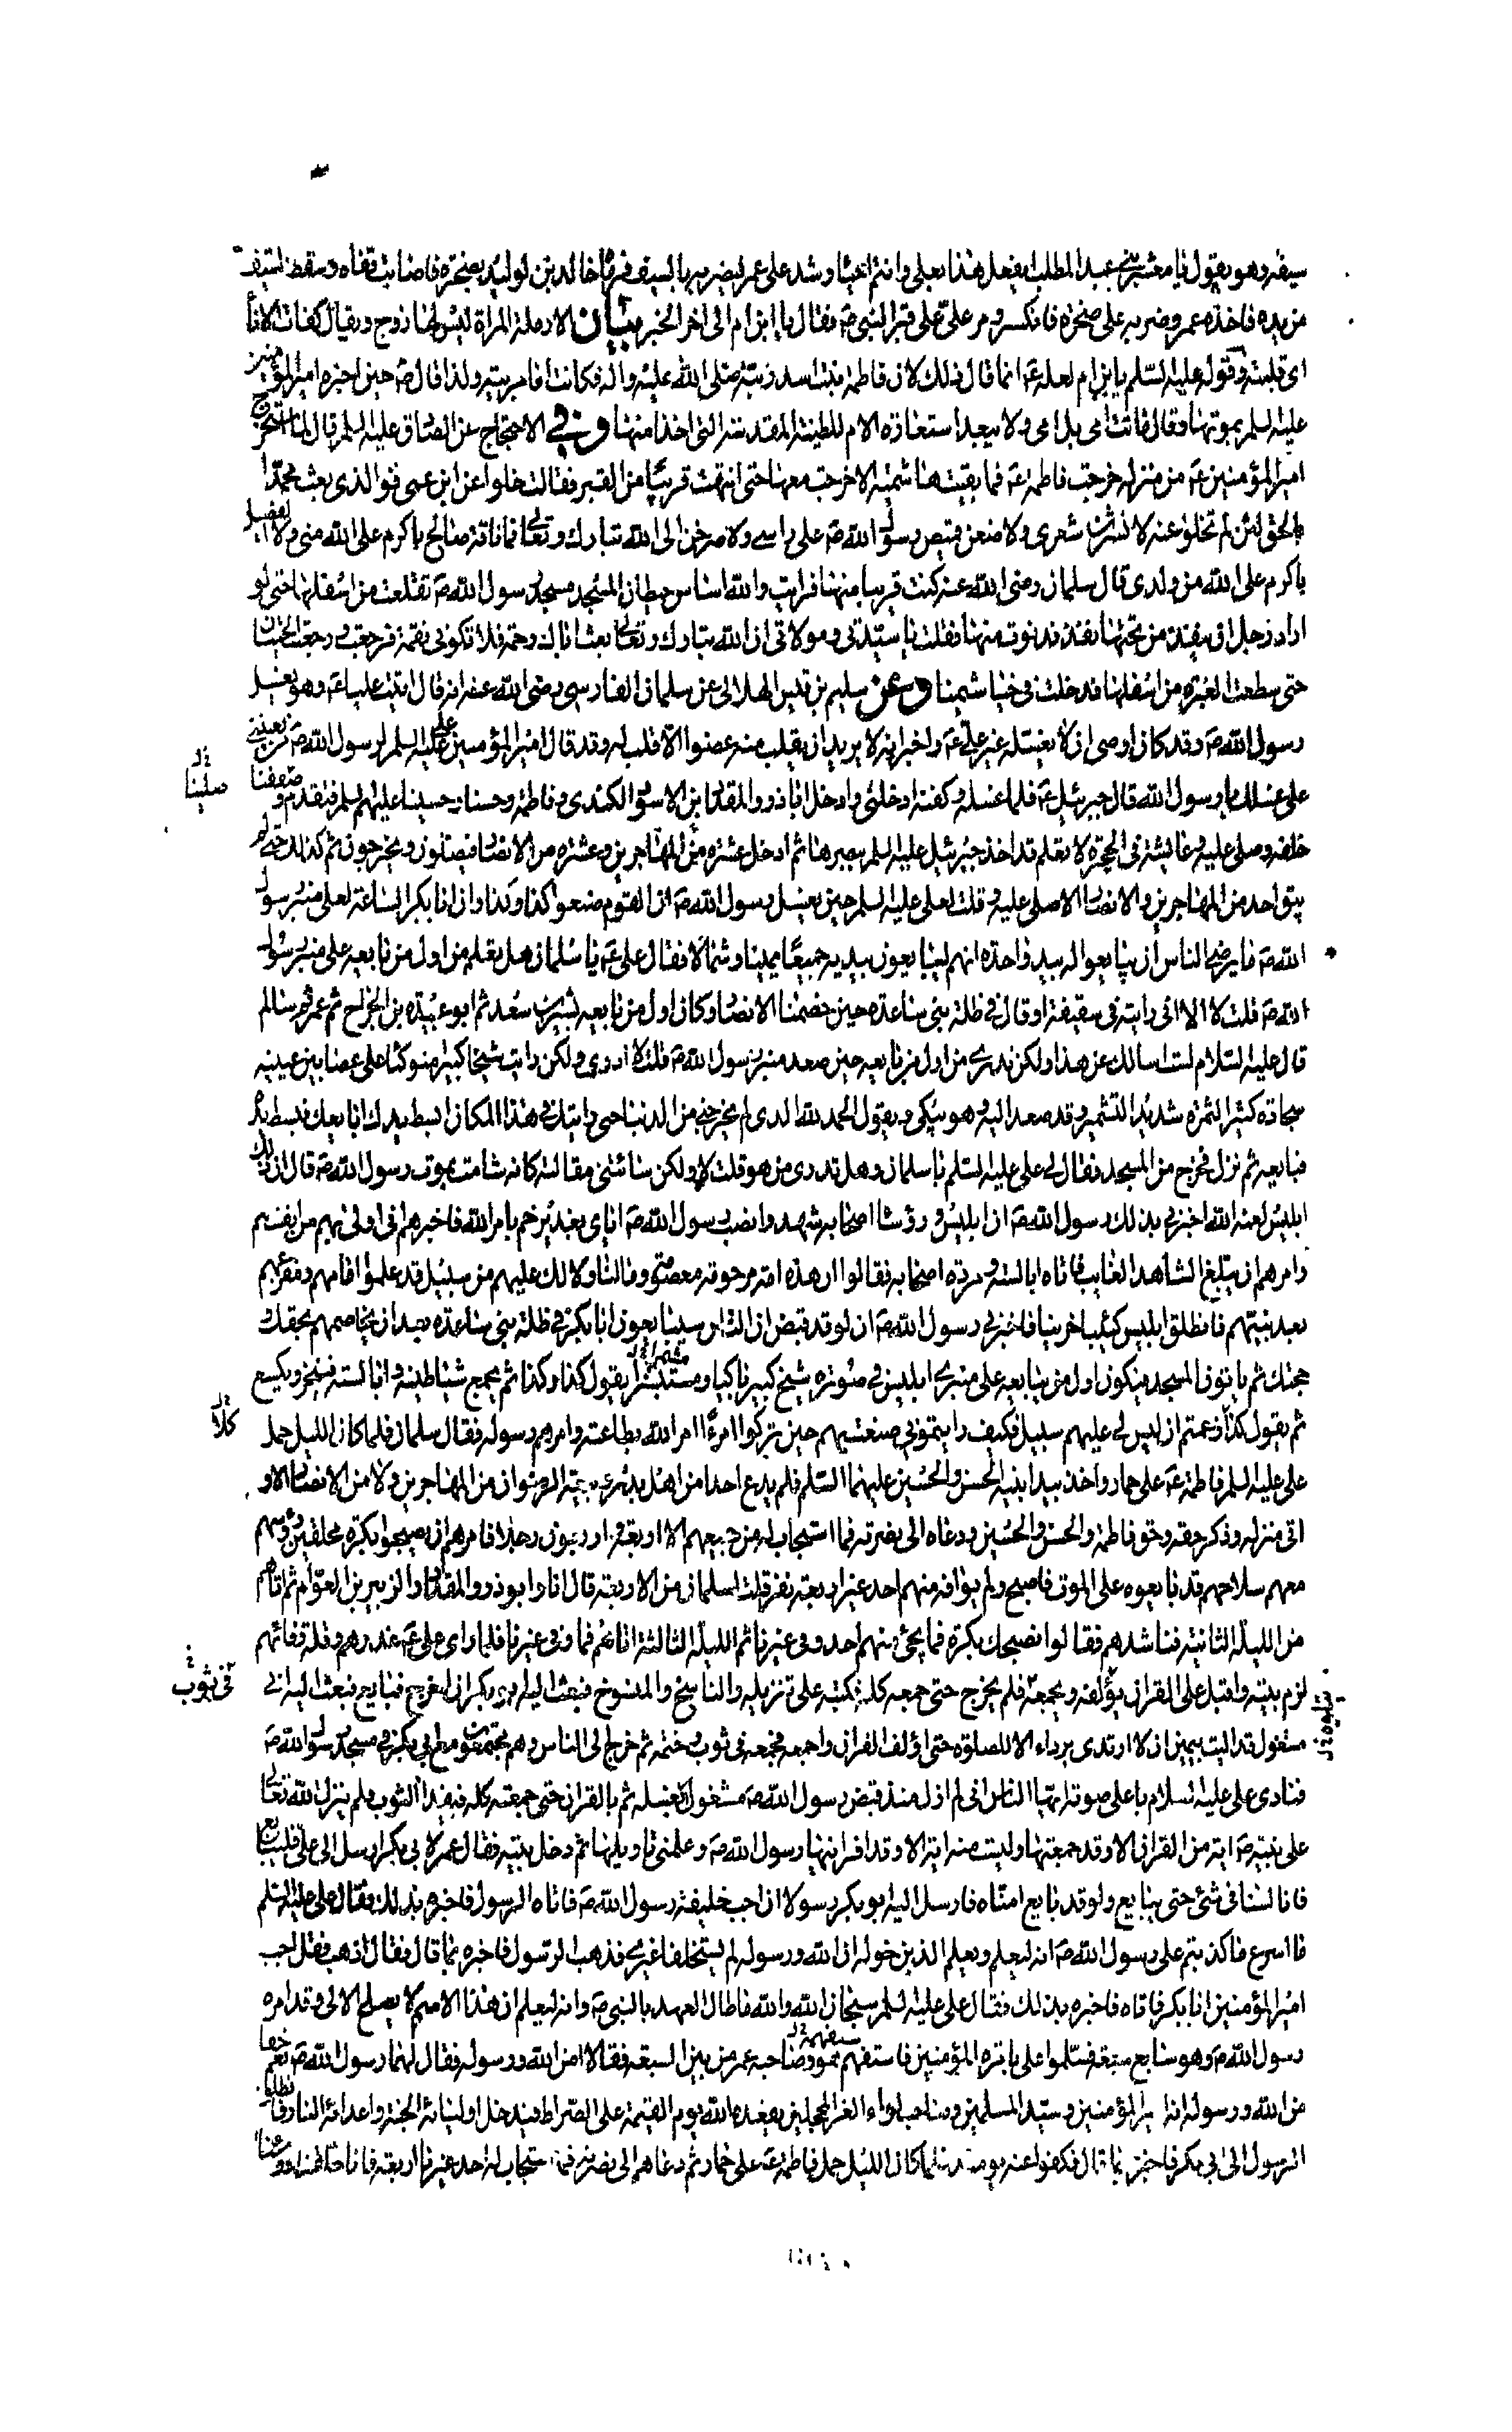 سيفه وهو يقول يا معشر بني عبد المطلب ايفعل هذا بعلي وانتم احياء وشد على عمر ليضربه بالسيف فرماه خالد بن الوليد بصخرة فاصابت قفاه وسقط السيف
من يده فاخذه عمر وضربه على صخرة فانكسر ومر علي ع على قبر النبي ص فقال يا ابن ام الى اخر الخبر بيان الارملة المراة ليس لها زوج ويقال كفات الاناء
اى قلبته وقوله عليه السلم يا بن ام لعله ع انما قال ذلك لان فاطمة بنت اسد ربته صلى الله عليه واله فكانت امربيته ولذا قال ص حين اخبره امير المؤمنين
عليه السلم بموتها وقال ماتت امى بل امى ولا يبعد استعارة الام للطينة المقدسة التى اخذا منها وفي الاحتجاج عن الصادق عليه السلم قال لما استخرج
امير المؤمنين ع من منزله خرجت فاطمة ع فما بقيت هاشمية الا خرجت معها حتى انتهت قريبا من القبر فقالت خلوا عن ابن عمى فوالذى بعث محمدا
بالحق لئن لم تخلوا عنه لانشرن شعرى ولاضعن قميص رسول الله ص على راسى ولاصرخن الى الله تبارك وتعالى فما ناقة صالح باكرم على الله منى ولا الفصيل
باكرم على الله من ولدى قال سلمان رضى الله عنه كنت قريبا منها فرايت والله اساس حيطان المسجد مسجد رسول الله ص تقلعت من اسفلها حتى لو
اراد رجل ان ينفذ من تحتها نفذ فدنوت منها فقلت يا سيدتى ومولاتى ان الله تبارك وتعالى بعث اباك رحمة فلا تكونى نقمة فرجعت ورجعت الحيطان
حتى سطعت الغبرة من اسفلها فدخلت فى خياشيمنا وعن سليم بن قيس الهلالى عن سلمان الفارسى رضى الله عنه انه قال اتيت عليا ع وهو يغسل
رسول الله ص وقد كان اوصى ان لا يغسله غير علي ع واخبر انه لا يريد ان يقلب منه عضوا الا قلب له وقد قال امير المؤمنين على عليه السلم لرسول الله ص من يعيننى
على غسلك يا رسول الله قال جبرئيل ع فلما غسله وكفنه ادخلنى وادخل اباذر والمقداد بن الاسود الكندى وفاطمة وحسنا وحسينا عليهم السلم فتقدم وصففنا
صلينا
خلفه وصلى عليه وعايشة فى الحجرة لا تعلم قد اخذ جبرئيل عليه السلم ببصرها ثم ادخل عشرة من المهاجرين وعشرة من الانصار فيصلون ويخرجون ثم كذلك حتى لم
يبق احد من المهاجرين والانصار الا صلى عليه وقلت لعلى عليه السلم حين يغسل رسول الله ص ان القوم صنعوا كذا وكذا وان ابا بكر الساعة لعلى منبر رسول
الله ص ما يرضى الناس ان يبايعوا له بيد واحدة انهم ليبايعون بيديه جميعا يمينا وشمالا فقال على ع يا سلمان هل تعلم من اول من بايعه على منبر رسول
الله ص قلت لا الا انى رايته فى سقيفة او قال فى ظلة بنى ساعدة حين خصمنا الانصار وكان اول من بايعه بشير بن سعد ثم ابو عبيدة بن الجراح ثم عمر ثم سالم
قال عليه السلام لست اسالك عن هذا ولكن تدرى من اول من بايعه حين صعد منبر رسول الله ص قلت لا ادرى ولكن رايت شيخا كبيرا متوكئا على عصا بين عينيه
سجادة كثير الثمرة شديد التشمير وقد صعد اليه وهو يبكى ويقول الحمد لله الذى لم يخرجنى من الدنيا حتى رايتك فى هذا المكان ابسط يدك ابايعك فبسط يده
فبايعه ثم نزل فخرج من المسجد فقال لى على عليه السلم يا سلمان وهل تدرى من هو قلت لا ولكن سائتنى مقالته كانه شامت بموت رسول الله ص قال ان ذلك
ابليس لعنه الله اخبرنى بذلك رسول الله ص ان ابليس ورؤسا اصحابه شهدوا نصب رسول الله ص اياى بغدير خم بامر الله فاخبرهم انى اولى بهم من انفسهم
وامرهم ان يبلغ الشاهد الغايب فاتاه ابالسته ومردة اصحابه فقالوا ان هذه امة مرحومة معصومة وما لنا ولا لك عليهم من سبيل قد علموا امامهم ومفزعهم
بعد نبيهم فانطلق ابليس كئيبا حزينا فاخبرنى رسول الله ص ان لو قد قبض ان الناس سيبايعون ابا بكر فى ظلة بنى ساعدة بعد ان يخاصمهم بحقك
حجتك ثم ياتون المسجد فيكون اول من يبايعه على منبرى ابليس فى صورة شيخ كبير باكيا ومستبشرا يقول كذا وكذا ثم يجمع شياطينه وابالسته فينخر ويكسع
كلا
ثم يقول كذا زعمتم ان ليس لى عليهم سبيل فكيف رايتمونى صنعت بهم حين تركوا امر من امر الله بطاعته وامرهم رسوله فقال سلمان فلما كان الليل حمل
على عليه السلم فاطمة ع على حمار واخذ بيد ابنيه الحسن والحسين عليهما السلم فلم يدع احدا من اهل بدر من المهاجرين ولا من الانصار الا و
اتى منزله وذكر حقه وحق فاطمة والحسن والحسين ودعاه الى نصرته فما استجاب له من جميعهم الا اربعة واربعون رجلا فامرهم ان يصبحوا بكرة محلقين رؤسهم
معهم سلاحهم قد بايعوه على الموت فاصبح ولم يوافه منهم احد غير اربعة نفر قلت لسلمان من الاربعة قال انا وابو ذر والمقداد والزبير بن العوام ثم اتاهم
من الليلة الثانية فناشدهم فقالوا نصبحك بكرة فما يجئ منهم احد وفى غيرنا ثم الليلة الثالثة اتاهم فما وفى غيرنا فلما راى على ع غدرهم وقلة وفائهم
فى ثوب
لزم بيته واقبل على القران يؤلفه ويجمعه فلم يخرج حتى جمعه كله يكتبه على تنزيله والناسخ والمنسوخ فبعث اليه ابو بكر ان اخرج فبايع فبعث اليه انى
مشغول قد اليت بيمين ان لا ارتدى برداء الا للصلوة حتى اؤلف القران واجمعه فجمعه فى ثوب وختمه ثم خرج الى الناس وهم مجتمعون مع ابى بكر فى مسجد رسول الله ص
فنادى على عليه السلام باعلى صوته ايها الناس انى لم ازل منذ قبض رسول الله ص مشغول بغسله ثم بالقران حتى جمعته كله فى هذا الثوب فلم ينزل الله تعالى
على نبيه ص اية من القران الا وقد جمعتها وليست منه اية الا وقد اقرانيها رسول الله ص وعلمنى تاويلها ثم دخل بيته فقال عمر لابى بكر ارسل الى على فليبايع
فانا لسنا فى شئ حتى يبايع ولو قد بايع امناه فارسل اليه ابو بكر رسولا ان اجب خليفة رسول الله ص فاتاه الرسول فاخبره بذلك فقال على عليه السلم
ما اسرع ما كذبتم على رسول الله ص انه ليعلم ويعلم الذين حوله ان الله ورسوله لم يستخلفا غيرى فذهب الرسول فاخبره بما قال فقال اذهب فقل اجب
امير المؤمنين ابا بكر فاتاه فاخبره بذلك فقال على عليه السلم سبحان الله والله ما طال العهد بالنبى ص وانه ليعلم ان هذا الاسم لا يصلح الا لى وقد امره
رسول الله ص وهو سابع سبعة فسلموا على بامرة المؤمنين فاستفهمه هو وصاحبه عمر من بين السبعة فقالا امن الله ورسوله فقال لهما رسول الله ص نعم حقا
من الله ورسوله انه امير المؤمنين وسيد المسلمين وصاحب لواء الغر المحجلين يقعده الله يوم القيمة على الصراط فيدخل اوليائه الجنة واعدائه النار فانطلق
الرسول الى ابى بكر فاخبره بما قال فكفوا عنه يومئذ فلما كان الليل حمل فاطمة ع على حمار ثم دعاهم الى نصرته فما استجاب له احد غيرنا اربعة فانا حلقنا رؤسنا